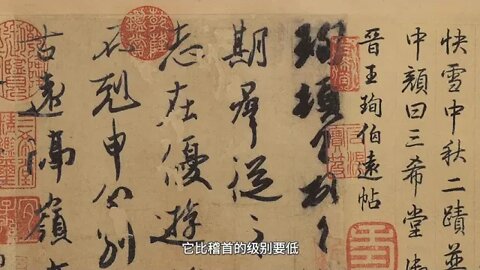 快雪中秋二蹟並
中顏曰三希堂
晉王珣伯遠帖
珣頓首頓首
期群從之
志在優遊
不剋申分別
古遠隔嶺
它比稽首的级别要低